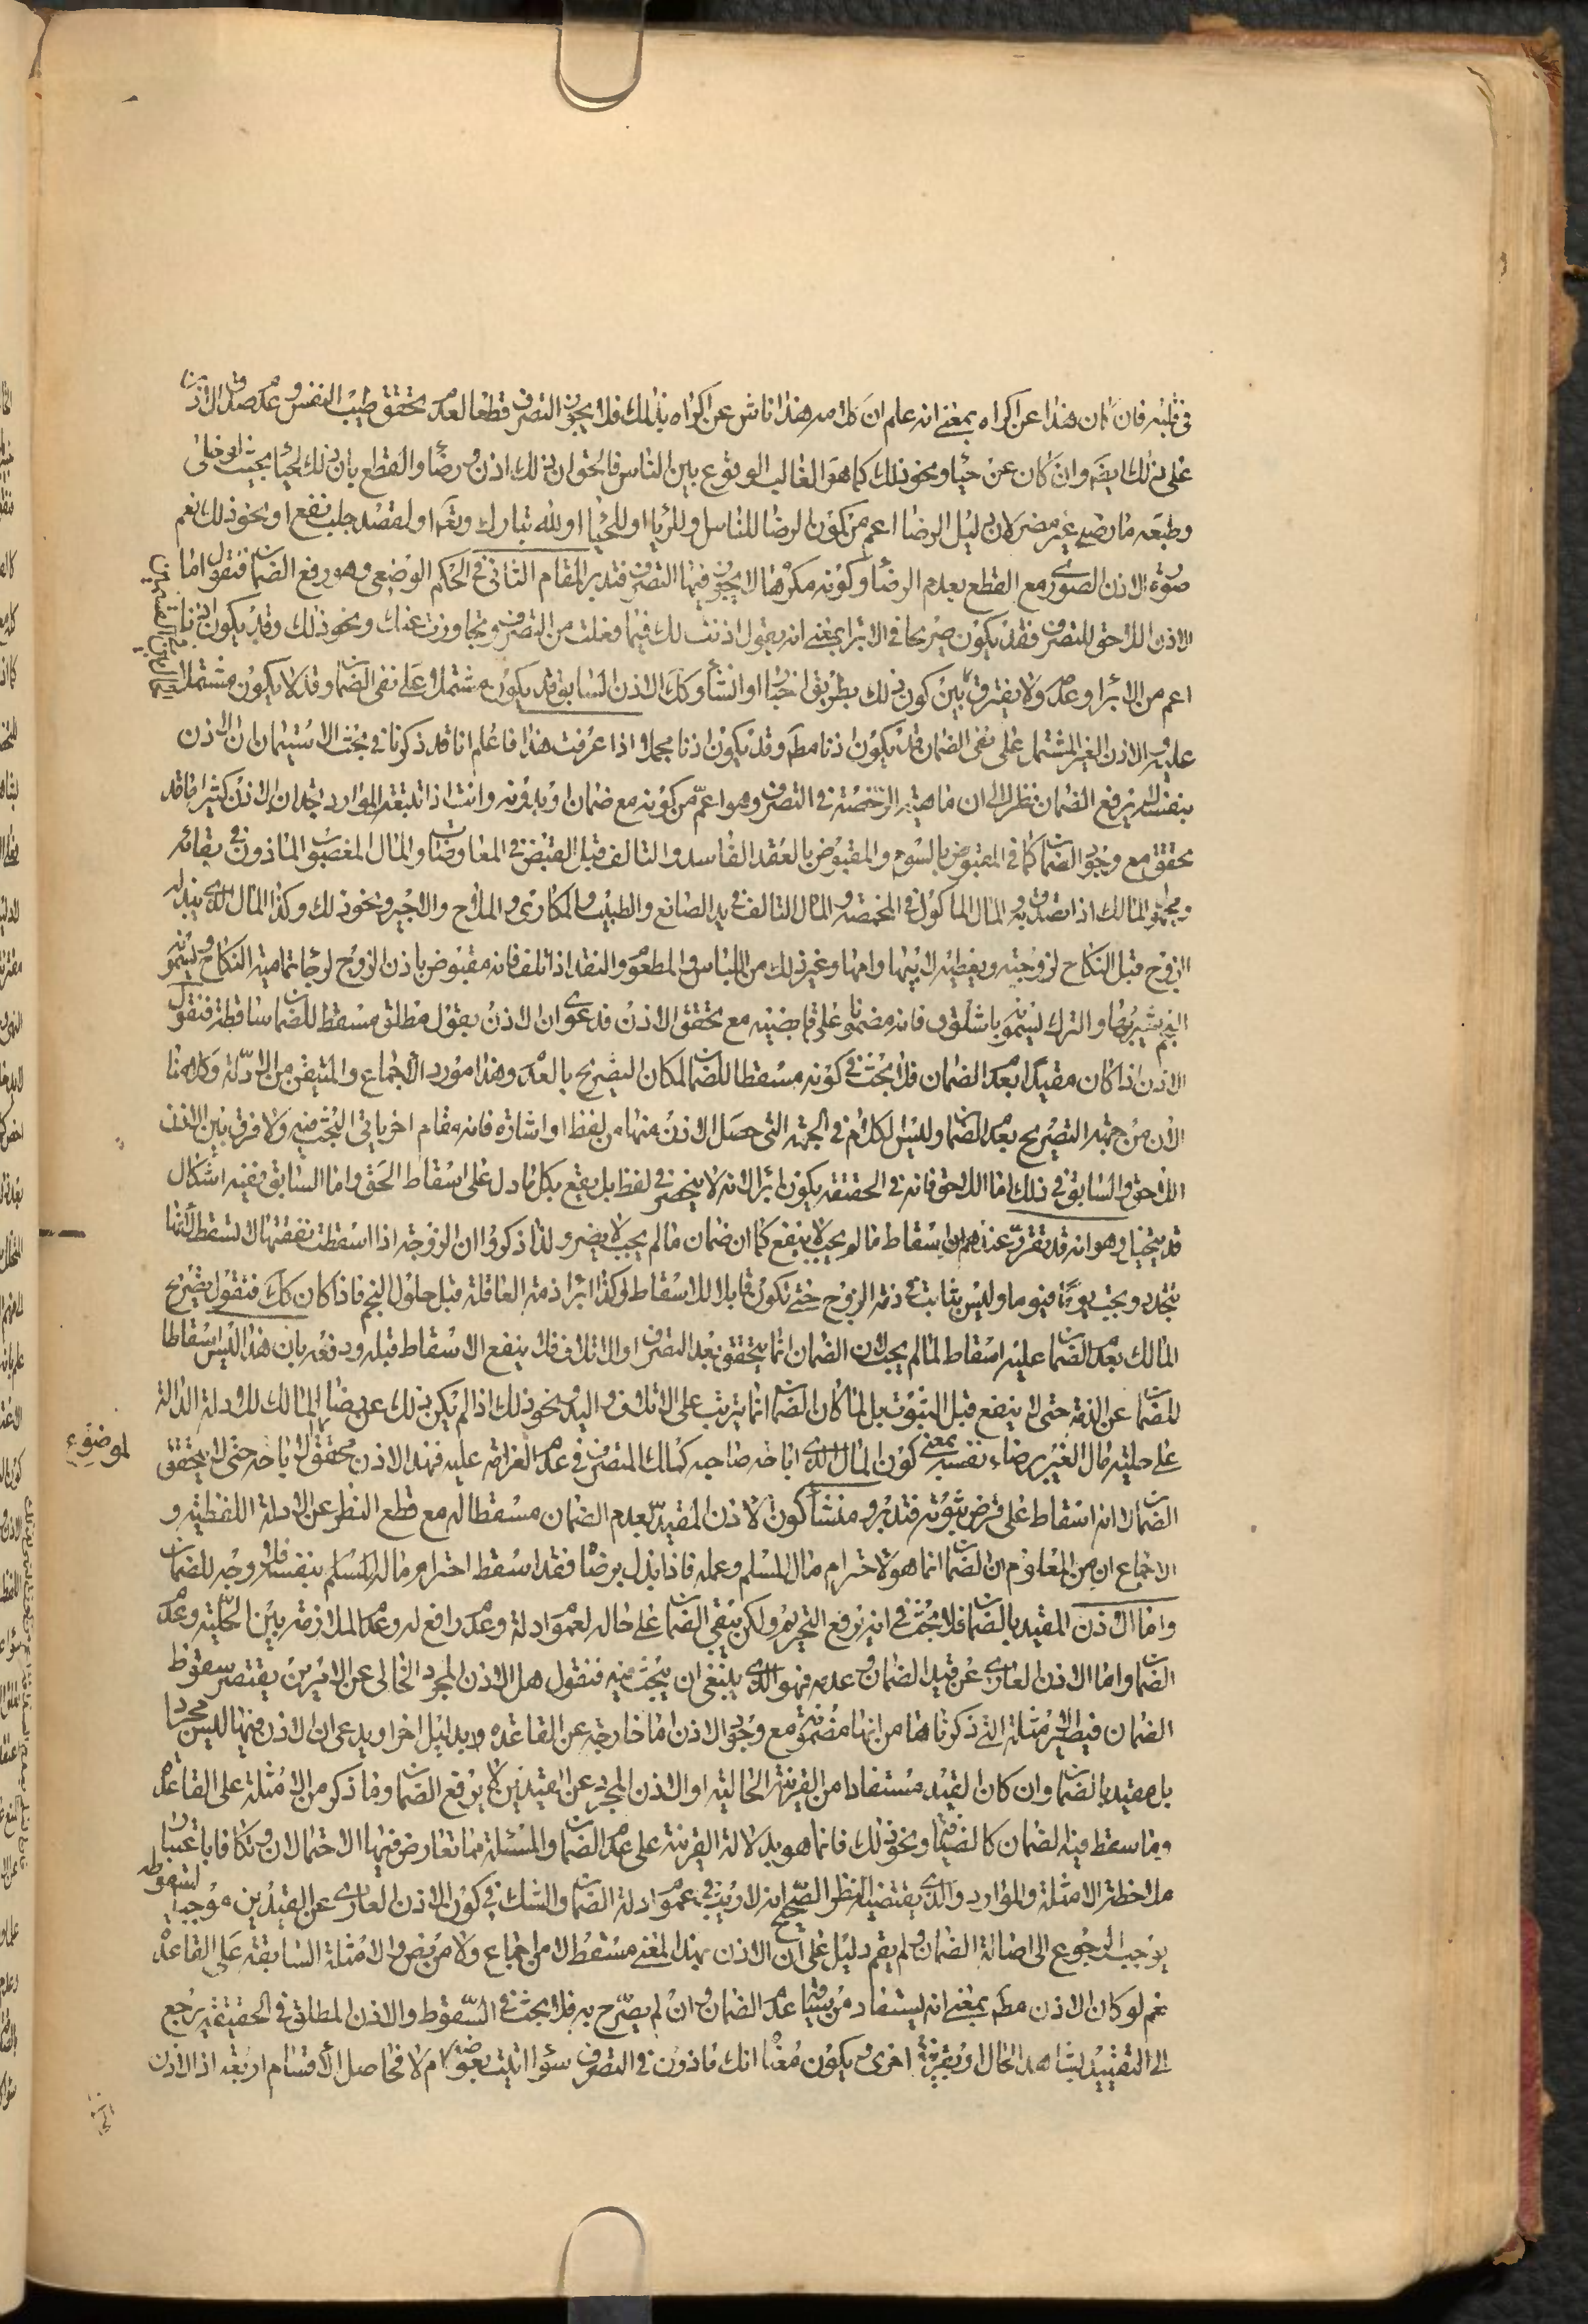 في قلبه فان كان هذا عن اكراه بمعنى انه علم ان كلامه هذا ناش عن اكراه بذلك فلا يجوز التصرف قطعا لعدم تحقق طيب النفس وعدم صدق الاذن
على ذلك ايضا وان كان عن حياء ونحو ذلك كما هو الغالب الوقوع بين الناس فالحق ان ذلك اذن ورضا والقطع بان ذلك لحياء بحيث لو خلى
وطبعه ما رضي غير مضر لان دليل الرضا اعم من كون الرضا للناس وللرياء او للحياء او لله تبارك وتعالى او لقصد جلب نفع او نحو ذلك نعم
صورة الاذن الصوري مع القطع بعدم الرضا وكونه مكرها لا يجوز فيها التصرف فتدبر المقام الثاني في الحكم الوضعي وهو رفع الضمان فنقول اما
الاذن اللاحق للتصرف فقد يكون صريحا في الابراء بمعنى انه يقول اذنت لك فيما فعلت من التصرف وتجاوزت عنك ونحو ذلك وقد يكون اذنا
اعم من الابراء وعدمه ولا يفترق بين كون ذلك بطريق اخبار او انشاء وكذا الاذن السابق قد يكون مشتملا على نفي الضمان وقد لا يكون مشتملا
عليه والاذن الغير المشتمل على نفي الضمان قد يكون اذنا مطلقا وقد يكون اذنا مجملا اذا عرفت هذا فاعلم انا قد ذكرنا في بحث الاستيمان ان الاذن
بنفسه لا يرفع الضمان نظرا الى ان ماهيته الرخصة في التصرف وهو اعم من كونه مع ضمان او بدونه وانت اذا تتبعت الموارد تجد ان الاذن كثيرا ما قد
تحقق مع وجود الضمان كما في المقبوض بالسوم والمقبوض بالعقد الفاسد والتالف قبل القبض في المعاوضات والمال المغصوب الماذون في بقائه
ومجهول المالك اذا تصدق به والمال الماكول في المخمصة والمال التالف في يد الصانع والطبيب والمكاري والملاح والاجير ونحو ذلك وكذا المال الذي يبذله
الزوج قبل النكاح لزوجته ويعطيه لابيها وامها وغير ذلك من اللباس والمطعوم والنقد اذا تلف فانه مقبوض باذن الزوج لرجاء تمامية النكاح ويسمونه
العجم شيربها والترك يسمونه باشلق فانه مضمون على قابضيه مع تحقق الاذن فدعوى ان الاذن بقول مطلق مسقط للضمان ساقطة فنقول
الاذن اذا كان مقيدا بعدم الضمان فلا بحث في كونه مسقطا للضمان لمكان التصريح بالعدم وهذا مورد الاجماع والمتيقن من الادلة وكلامنا
الان من جهة التصريح بعدم الضمان وليس الكلام في الجهة التي حصل الاذن منها من لفظ او اشارة فانه مقام اخر ياتي البحث فيه ولا فرق بين الاذن
اللاحق والسابق في ذلك اما اللاحق فانه في الحقيقة يكون ابراء لانه لا ينحصر في لفظ بل يقع بكل ما دل على اسقاط الحق واما السابق ففيه اشكال
قد يتخيل وهو انه قد تقرر عندهم ان اسقاط ما لم يجب لا ينفع كما ان ضمان ما لم يجب لا يضر ولذا ذكروا ان الزوجة اذا اسقطت نفقتها لا تسقط لانها
تتجدد ويجب يوما فيوما وليس بثابت في ذمة الزوج حتى تكون قابلا للاسقاط وكذا ابراء ذمة العاقلة قبل حلول النجم فاذا كان كذلك فنقول تصريح
المالك بعدم الضمان عليه اسقاط لما لم يجب لان الضمان انما يتحقق بعد التصرف او الاتلاف فلا ينفع الاسقاط قبله ودفعه بان هذا ليس اسقاطا
للضمان عن الذمة حتى لا ينفع قبل الثبوت بل لما كان الضمان انما يترتب على الاتلاف واليد ونحو ذلك اذا لم يكن ذلك عن رضا المالك للادلة الدالة
على حلية مال الغير برضاء نفسه بمعنى كون المال الذي اباحه صاحبه كمالك المتصرف في عدم الغرامة عليه فهذا الاذن محقق لاباحة حتى لا يتحقق
لموضوع
الضمان لا انه اسقاط على فرض ثبوته فتدبر ومنشأ كون الاذن المقيد بعدم الضمان مسقطا له مع قطع النظر عن الادلة اللفظية و
الاجماع ان من المعلوم ان الضمان انما هو لاحترام مال المسلم وعمله فاذا بذل برضا فقد اسقط احترام ماله المسلم بنفسه فلا وجه للضمان
واما الاذن المقيد بالضمان فلا بحث في انه يرفع التحريم ولكن يبقى الضمان على حاله لعموم ادلة وعدم رافع له وعدم الملازمة بين الحلية وعدم
الضمان واما الاذن العاري عن قيد الضمان وعدمه فهو الذي ينبغي ان يبحث فيه فنقول هل الاذن المجرد الخالي عن الامرين يقتضي سقوط
الضمان فيطلب الامثلة التي ذكرناها من انها مضمونة مع وجود الاذن اما خارجة عن القاعدة بدليل اخر او يدعى ان الاذن فيها ليس مجردا
بل مقيد بالضمان وان كان القيد مستفادا من القرينة الحالية او الاذن المجرد عن القيدين لا يرفع الضمان وما ذكر من الامثلة على القاعدة
وما سقط فيه الضمان كالضيافة ونحو ذلك فانما هو بدلالة القرينة على عدم الضمان والمسئلة مما تعارض فيها الاحتمالان وتكافا باعتبار
ملاحظة الامثلة والموارد والذي يقتضيه النظر الصحيح انه لا ريب في عموم ادلة الضمان والشك في كون الاذن العاري عن القيدين موجبا لسقوطه
يوجب الرجوع الى اصالة الضمان ولم يقم دليل على ان الاذن بهذا المعنى مسقط لا من اجماع ولا من نص والامثلة السابقة على القاعدة
نعم لو كان الاذن مطلقا بمعنى انه يستفاد من سياقه عدم الضمان وان لم يصرح به فلا بحث في السقوط والاذن المطلق في الحقيقة يرجع
الى التقييد بشاهد الحال او بقرينة اخرى ويكون معناه انك ماذون في التصرف سواء اتيت بعوضه ام لا فحاصل الاقسام اربعة اذ الاذن